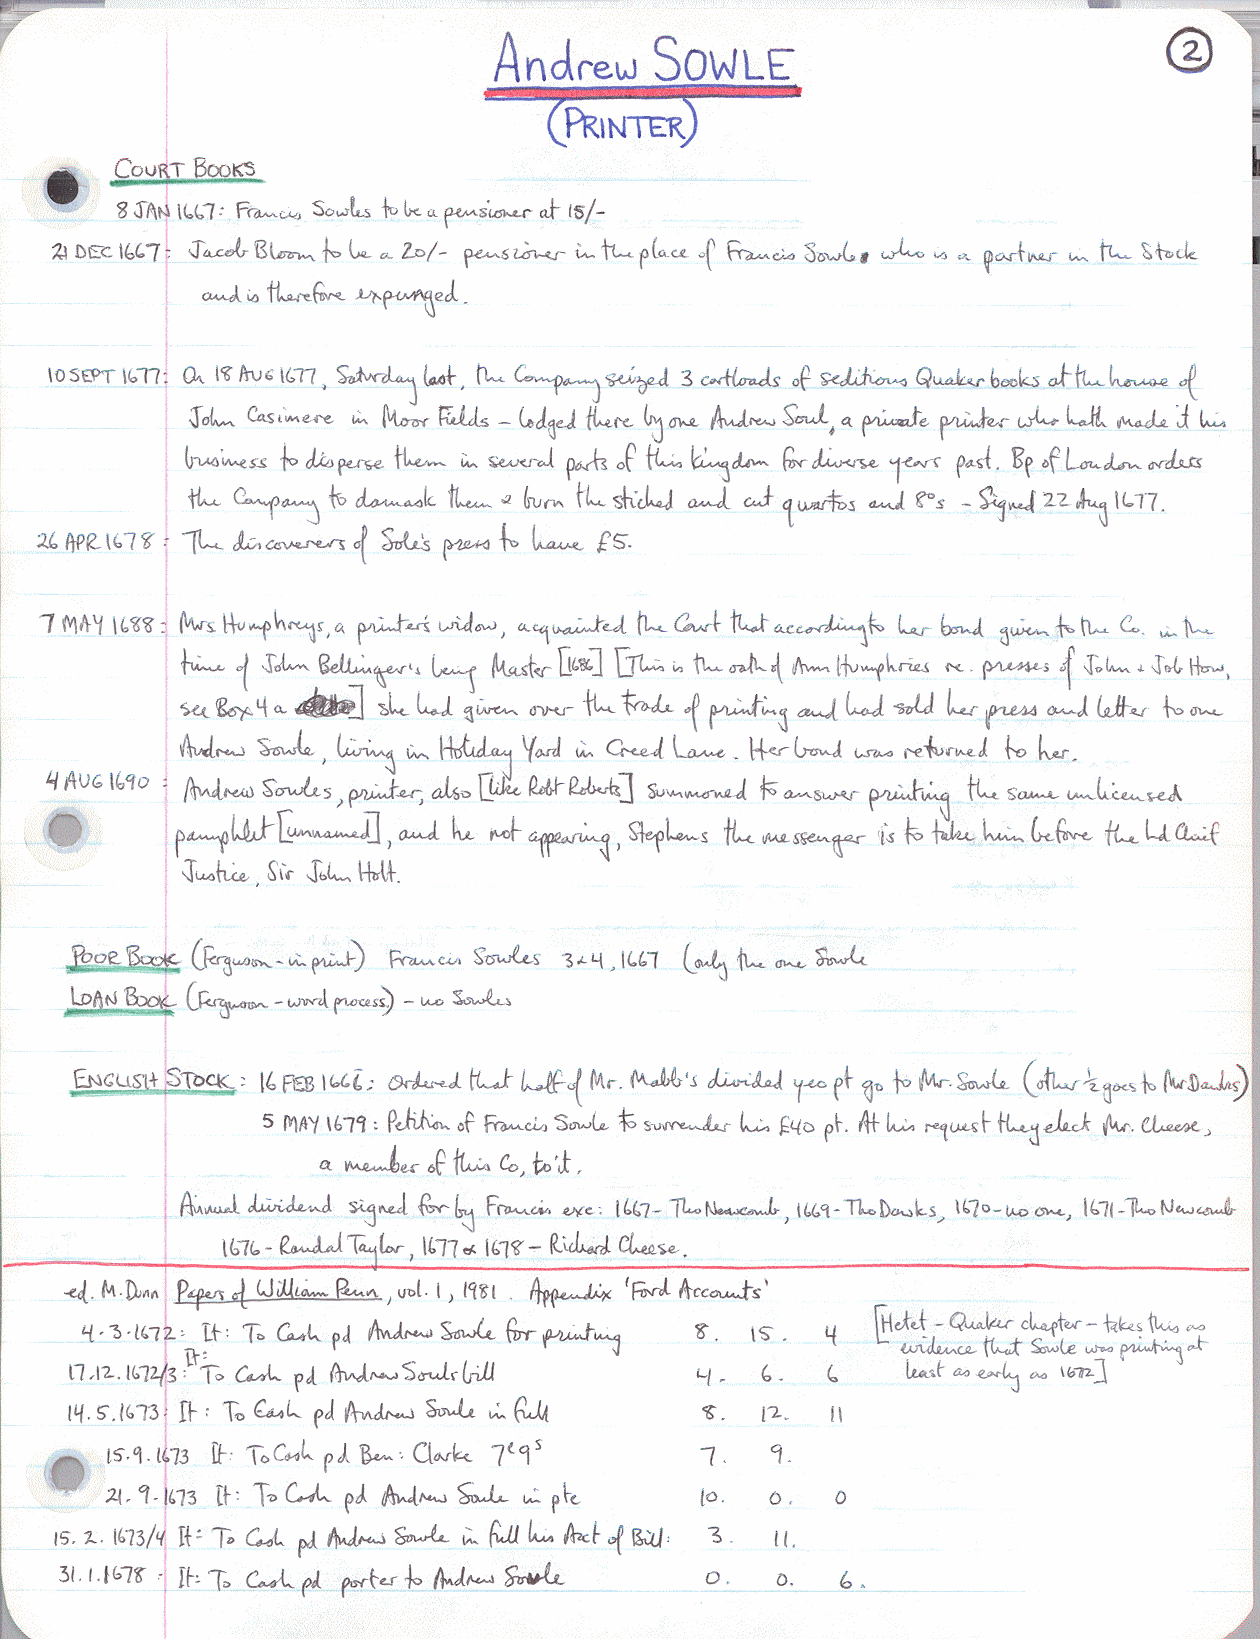 Andrew SOWLE
②
(PRINTER)
COURT BOOKS
8 JAN 1667: Francis Sowles to be a pensioner at 15/-
21 DEC 1667: Jacob Bloom to be a 20/- pensioner in the place of Francis Sowle who is a partner in the Stock
and is therefore expunged.
10 SEPT 1677: On 18 AUG 1677, Saturday last, the Company seized 3 cartloads of seditious Quaker books at the house of
John Casimere in Moor Fields – lodged there by one Andrew Soul, a private printer who hath made it his
business to disperse them in several parts of this kingdom for diverse years past. Bp of London orders
the Company to damask them & burn the stiched and cut quartos and 8°s – Signed 22 Aug 1677.
26 APR 1678: The discoverers of Sole's press to have £5.
7 MAY 1688: Mrs Humphreys, a printer's widow, acquainted the Court that according to her bond given to the Co. in the
time of John Bellinger's being Master [1686] [This is the oath of Ann Humphries re. presses of John & Job How,
see Box 4 a ] she had given over the trade of printing and had sold her press and letter to one
Andrew Sowle, living in Holiday Yard in Creed Lane. Her bond was returned to her.
4 AUG 1690: Andrew Sowles, printer, also [like Robt Roberts] summoned to answer printing the same unlicensed
pamphlet [unnamed], and he not appearing, Stephens the messenger is to take him before the Ld Chief
Justice, Sir John Holt.
POOR BOOK (Ferguson - in print) Francis Sowles 3&4, 1667 (only the one Sowle
LOAN BOOK (Ferguson - word process.) - no Sowles
ENGLISH STOCK: 16 FEB 1666: Ordered that half of Mr. Mabb's divided yeo pt go to Mr. Sowle (other ½ goes to Mr Dawks)
5 MAY 1679: Petition of Francis Sowle to surrender his £40 pt. At his request they elect Mr. Cheese,
a member of this Co, to it.
Annual dividend signed for by Francis exc: 1667- Tho Newcomb, 1669- Tho Dawks, 1670- no one, 1671- Tho Newcomb
1676- Randal Taylor, 1677 & 1678 – Richard Cheese.
ed. M. Dunn Papers of William Penn, vol. 1, 1981. Appendix 'Ford Accounts'
4.3.1672: It: To Cash pd Andrew Sowle for printing 8. 15. 4
[Hetet - Quaker chapter - takes this as
evidence that Sowle was printing at
least as early as 1672]
17.12.1672/3: It: To Cash pd Andrew Souls bill 4. 6. 6
14.5.1673: It: To Cash pd Andrew Soule in full 8. 12. 11
15.9.1673 It: To Cash pd Ben: Clarke 7ˡ 9ˢ 7. 9.
21.9.1673 It: To Cash pd Andrew Soule in pte 10. 0. 0
15.2.1673/4 It: To Cash pd Andrew Sowle in full his Acct of Bill: 3. 11.
31.1.1678 - It: To Cash pd porter to Andrew Sowle 0. 0. 6.